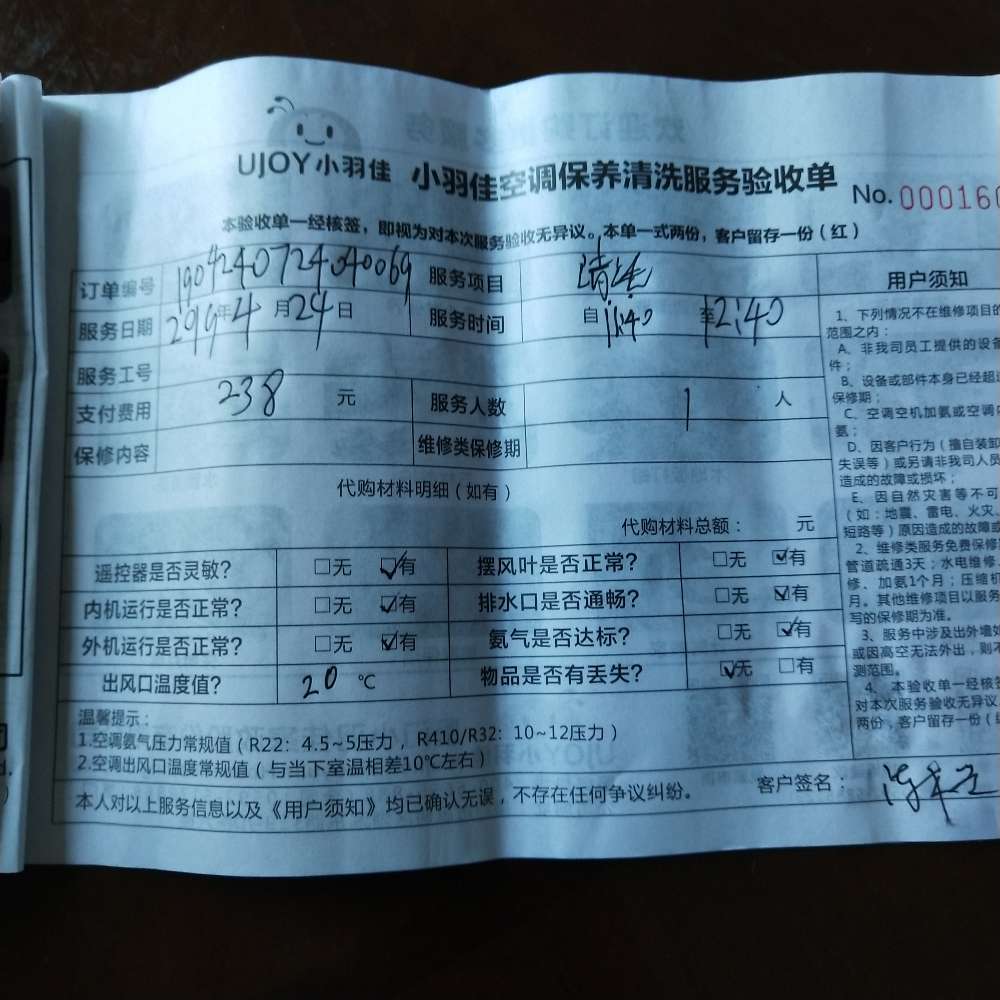 UJOY小羽佳 小羽佳空调保养清洗服务验收单 No.000160
本验收单一经核签，即视为对本次服务验收无异议。本单一式两份，客户留存一份（红）
订单编号 1904240724040069 服务项目 清洗
服务日期 2019年4月24日 服务时间 自11:40 至12:40
服务工号
支付费用 238 元 服务人数 1 人
保修内容 维修类保修期
代购材料明细（如有）
代购材料总额： 元
遥控器是否灵敏？ □无 ☑有 摆风叶是否正常？ □无 ☑有
内机运行是否正常？ □无 ☑有 排水口是否通畅？ □无 ☑有
外机运行是否正常？ □无 ☑有 氨气是否达标？ □无 ☑有
出风口温度值？ 20 ℃ 物品是否有丢失？ ☑无 □有
温馨提示：
1.空调氨气压力常规值（R22：4.5~5压力，R410/R32：10~12压力）
2.空调出风口温度常规值（与当下室温相差10℃左右）
本人对以上服务信息以及《用户须知》均已确认无误，不存在任何争议纠纷。 客户签名：
用户须知
1、下列情况不在维修项目的
范围之内：
A、非我司员工提供的设备
件；
B、设备或部件本身已经超
保修期；
C、空调空机加氨或空调内
氨；
D、因客户行为（擅自装卸
失误等）或另请非我司人员
造成的故障或损坏；
E、因自然灾害等不可
（如：地震、雷电、火灾、
短路等）原因造成的故障或
2、维修类服务免费保修
管道疏通3天；水电维修
修、加氨1个月；压缩机
月。其他维修项目以服务
写的保修期为准。
3、服务中涉及出外墙
或因高空无法外出，则不
测范围。
4、本验收单一经核签
对本次服务验收无异议
两份，客户留存一份（